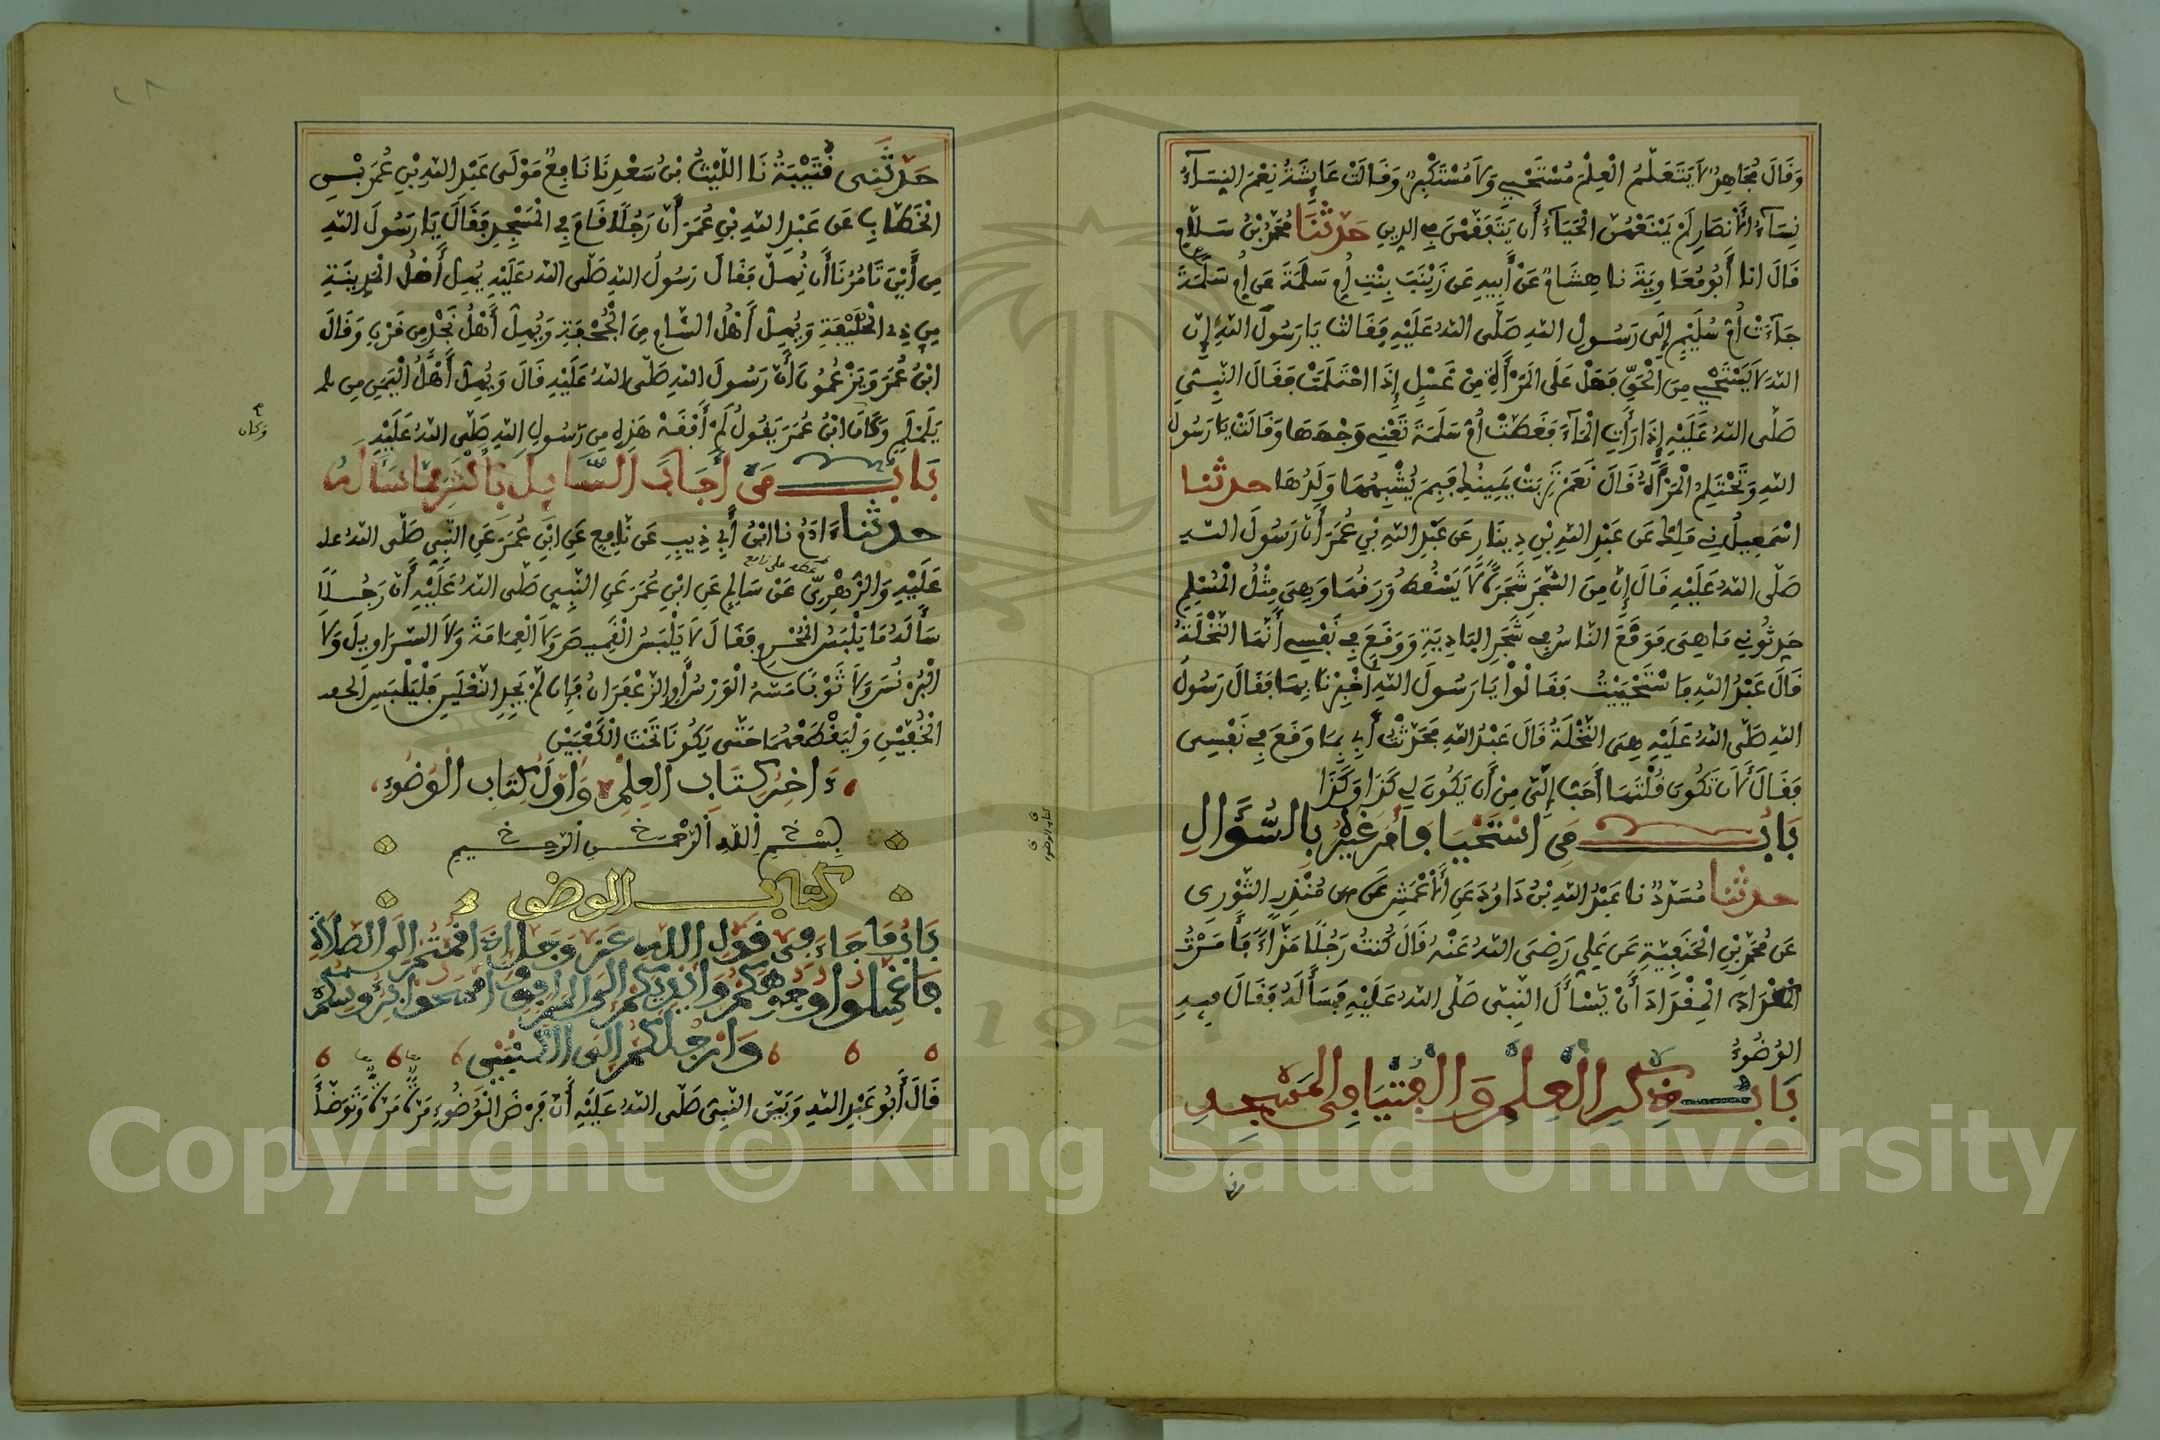 وَقَالَ مُجَاهِدٌ لَا يَتَعَلَّمُ الْعِلْمَ مُسْتَحْيِي وَلَا مُسْتَكْبِرٌ وَقَالَتْ عَايِشَةُ نِعْمَ النِّسَآءُ
نِسَآءُ الْأَنْصَارِ لَمْ يَمْنَعْهُنَّ الْحَيَآءُ أَن يَتَفَقَّهْنَ فِي الدِّينِ حَدَّثَنَا مُحَمَّدُ بْنُ سَلَامٍ
قَالَ انا أَبُو مُعَاوِيَةَ نا هِشَامٌ عَنْ أَبِيهِ عَن زَيْنَبَ بِنْتِ أُمِّ سَلَمَةَ عَن أُمِّ سَلَمَةَ
جَآءَتْ أُمُّ سُلَيْمٍ إِلَى رَسُولِ اللهِ صَلَّى اللهُ عَلَيْهِ فَقَالَتْ يَا رَسُولَ اللهِ إِنَّ
اللهَ لَا يَسْتَحْيِي مِنَ الْحَقِّ فَهَلْ عَلَى الْمَرْأَةِ مِنْ غَسْلٍ إِذَا احْتَلَمَتْ فَقَالَ النَّبِيُّ
صَلَّى اللهُ عَلَيْهِ إِذَا رَأَتِ الْمَآءَ فَغَطَّتْ أُمُّ سَلَمَةَ تَعْنِي وَجْهَهَا وَقَالَتْ يَا رَسُولَ
اللهِ وَتَحْتَلِمُ الْمَرْأَةُ قَالَ نَعَمْ تَرِبَتْ يَمِينُكِ فَبِمَ يُشْبِهُهَا وَلَدُهَا حدثنا
اسْمَعِيلُ نِي مَلِكٌ عَن عَبْدِ اللهِ بْنِ دِينَارٍ عَن عَبْدِ اللهِ بْنِ عُمَرَ أَنَّ رَسُولَ اللهِ
صَلَّى اللهُ عَلَيْهِ قَالَ إِنَّ مِنَ الشَّجَرِ شَجَرَةً لَا يَسْقُطُ وَرَقُهَا وَهِيَ مِثْلُ الْمُسْلِمِ
حَدِّثُونِي مَا هِيَ فَوَقَعَ النَّاسُ فِي شَجَرِ الْبَادِيَةِ وَوَقَعَ فِي نَفْسِي أَنَّهَا النَّخْلَةُ
قَالَ عَبْدُ اللهِ فَاسْتَحْيَيْتُ فَقَالُوا يَا رَسُولَ اللهِ أَخْبِرْنَا بِهَا فَقَالَ رَسُولُ
اللهِ صَلَّى اللهُ عَلَيْهِ هِيَ النَّخْلَةُ قَالَ عَبْدُ اللهِ فَحَدَّثْتُ أَبِي بِمَا وَقَعَ فِي نَفْسِي
فَقَالَ لَأَن تَكُونَ قُلْتَهَا أَحَبُّ إِلَيَّ مِنْ أَن يَكُونَ لِي كَذَا وَكَذَا
بَابُ مَنِ اسْتَحْيَا فَأَمَرَ غَيْرَهُ بِالسُّؤَالِ
حدثنا مُسَدَّدٌ نا عَبْدُ اللهِ بْنُ دَاوُدَ عَنِ الْأَعْمَشِ عَن مُنْذِرٍ الثَّوْرِيِّ
عَن مُحَمَّدِ بْنِ الْحَنَفِيَّةِ عَن عَلِي رَضِيَ اللهُ عَنْهُ قَالَ كُنتُ رَجُلًا مَذَّاءً فَأَمَرْتُ
الْمِقْدَادَ أَنْ يَسْأَلَ النَّبِيَّ صَلَّى اللهُ عَلَيْهِ فَسَأَلَهُ فَقَالَ فِيهِ
الوُضُوءُ
بَابُ ذِكْرِ الْعِلْمِ وَالْفُتْيَا فِي الْمَسْجِدِ
حَدَّثَنِي قُتَيْبَةُ نَا اللَّيْثُ بْنُ سَعْدٍ نَا نَافِعٌ مَوْلَى عَبْدِ اللهِ بْنِ عُمَرَ بْنِ
الْخَطَّابِ عَن عَبْدِ اللهِ بْنِ عُمَرَ أَنَّ رَجُلًا قَامَ فِي الْمَسْجِدِ فَقَالَ يَا رَسُولَ اللهِ
مِن أَيْنَ تَأْمُرُنَا أَن نُهِلَّ فَقَالَ رَسُولُ اللهِ صَلَّى اللهُ عَلَيْهِ يُهِلُّ أَهْلُ الْمَدِينَةِ
مِن ذِي الْحُلَيْفَةِ وَيُهِلُّ أَهْلُ الشَّامِ مِنَ الْجُحْفَةِ وَيُهِلُّ أَهْلُ نَجْدٍ مِن قَرْنٍ وَقَالَ
ابْنُ عُمَرَ وَيَزْعُمُونَ أَنَّ رَسُولَ اللهِ صَلَّى اللهُ عَلَيْهِ قَالَ وَيُهِلُّ أَهْلُ الْيَمَنِ مِن يلم
يَلَمْلَمِ وَكَانَ ابْنُ عُمَرَ يَقُولُ لَمْ أَفْقَهْ هَذِهِ مِن رَسُولِ اللهِ صَلَّى اللهُ عَلَيْهِ
وكان
بَابُ مَنْ أَجَابَ السَّايِلَ بِأَكْثَرَ مِمَّا سَأَلَهُ
حدثنا ءَادَمُ نا ابْنُ أَبِي ذِيبٍ عَن نَافِعٍ عَنِ ابْنِ عُمَرَ عَنِ النَّبِيِّ صَلَّى اللهُ عل
عَلَيْهِ وَالزُّهْرِيِّ عَنْ سَالِمٍ عَنِ ابْنِ عُمَرَ عَنِ النَّبِيِّ صَلَّى اللهُ عَلَيْهِ أَنَّ رَجُلًا
سَأَلَهُ مَا يَلْبَسُ الْمُحْرِمُ فَقَالَ لَا يَلْبَسُ الْقَمِيصَ وَلَا الْعِمَامَةَ وَلَا السَّرَاوِيلَ وَلَا
الْبُرْنُسَ وَلَا ثَوْبًا مَسَّهُ الْوَرْسُ أَوِ الزَّعْفَرَانُ فَإِن لَّمْ يَجِدِ النَّعْلَيْنِ فَلْيَلْبَسِ الخف
الْخُفَّيْنِ وَلْيَقْطَعْهُمَا حَتَّى يَكُونَا تَحْتَ الْكَعْبَيْنِ
ءَاخِرُ كِتَابِ الْعِلْمِ وَأَوَّلُ كِتَابِ الْوُضُوءِ
بِسْمِ اللهِ الرَّحْمٰنِ الرَّحِيمِ
كتاب الوضوء
بَابُ مَا جَاءَ فِي قَوْلِ اللهِ عَزَّ وَجَلَّ إِذَا قُمْتُمْ إِلَى الصَّلَاةِ
فَاغْسِلُوا وُجُوهَكُمْ وَأَيْدِيَكُمْ إِلَى الْمَرَافِقِ وَامْسَحُوا بِرُءُوسِكُمْ
وَأَرْجُلَكُمْ إِلَى الْكَعْبَيْنِ
قَالَ أَبُو عَبْدِ اللهِ وَبَيَّنَ النَّبِيُّ صَلَّى اللهُ عَلَيْهِ أَنَّ فَرْضَ الْوُضُوءِ مَرَّةً مَرَّةً وَتَوَضَّأَ
كتاب الوضوء
1957
Copyright © King Saud University